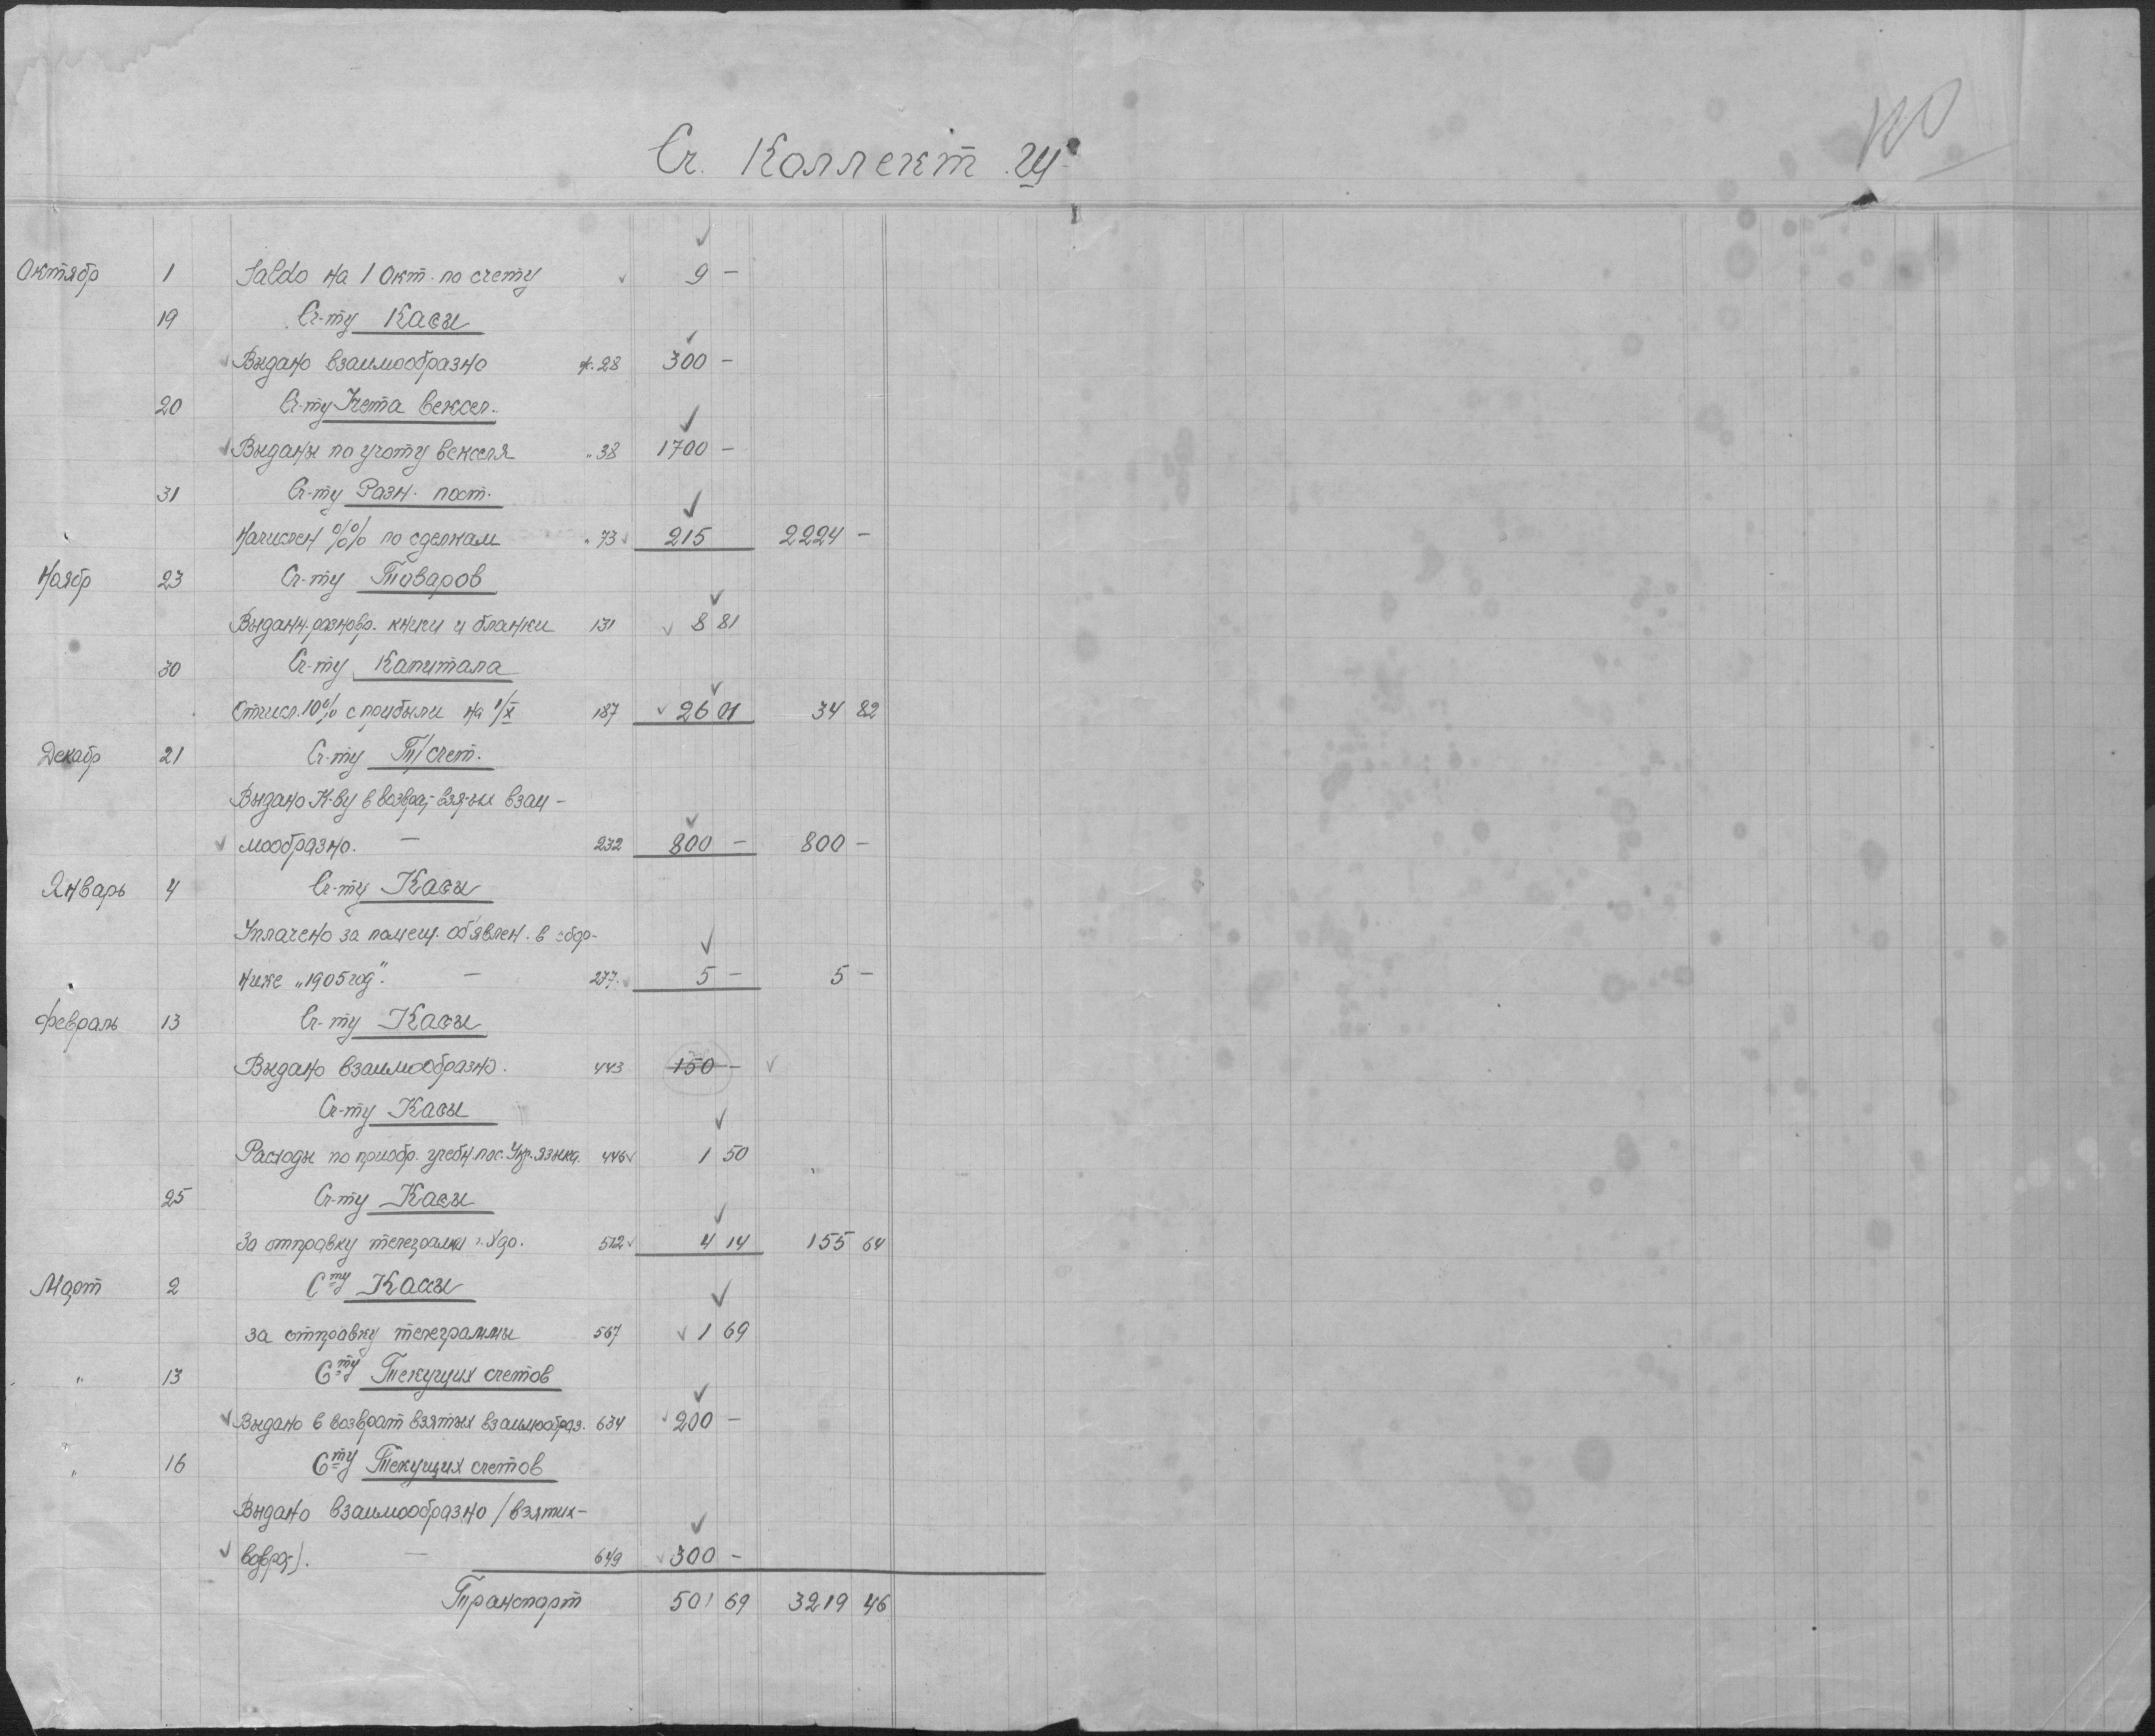 Сч. Коллект.
Октябр 1 Saldo на 1 Окт. по счету 9 —
19 Сч-ту Кассы
Выдано взаимообразно 28 300 —
20 Сч-ту Учета Вексел.
Выданы по учоту векселя " 38 1700 —
31 Сч-ту Разн. пост.
Начислен %% по сделкам " 73 215 2224 —
Ноябр 23 Сч-ту Товаров
книги и бланки 131 8 81
30 Сч-ту Капитала
Отчисл. 10% с прибыли на 1/X 187 26 01 34 82
Декабр 21 Сч-ту Т/счет.
Выдано К-ву в взаи-
мообразно. — 232 800 — 800 —
Январь 4 Сч-ту Кассы
Уплачено за помещ. об'явлен. в сбор-
нике „1905 год". — 277 5 — 5 —
Февраль 13 Сч-ту Кассы
Выдано взаимообразно. 443 150 —
Сч-ту Кассы
Расходы по приобр. учебн. пос. Укр. языка. 446 1 50
25 Сч-ту Кассы
За отправку телеграммы 512 4 14 155 64
Март 2 С-ту Кассы
за отправку телеграммы 567 1 69
" 13 С-ту Текущих счетов
Выдано в возврат взятых взаимообраз. 634 200 —
" 16 С-ту Текущих счетов
Выдано взаимообразно /взятих-
— 649 300 —
Транспорт 501 69 3219 46